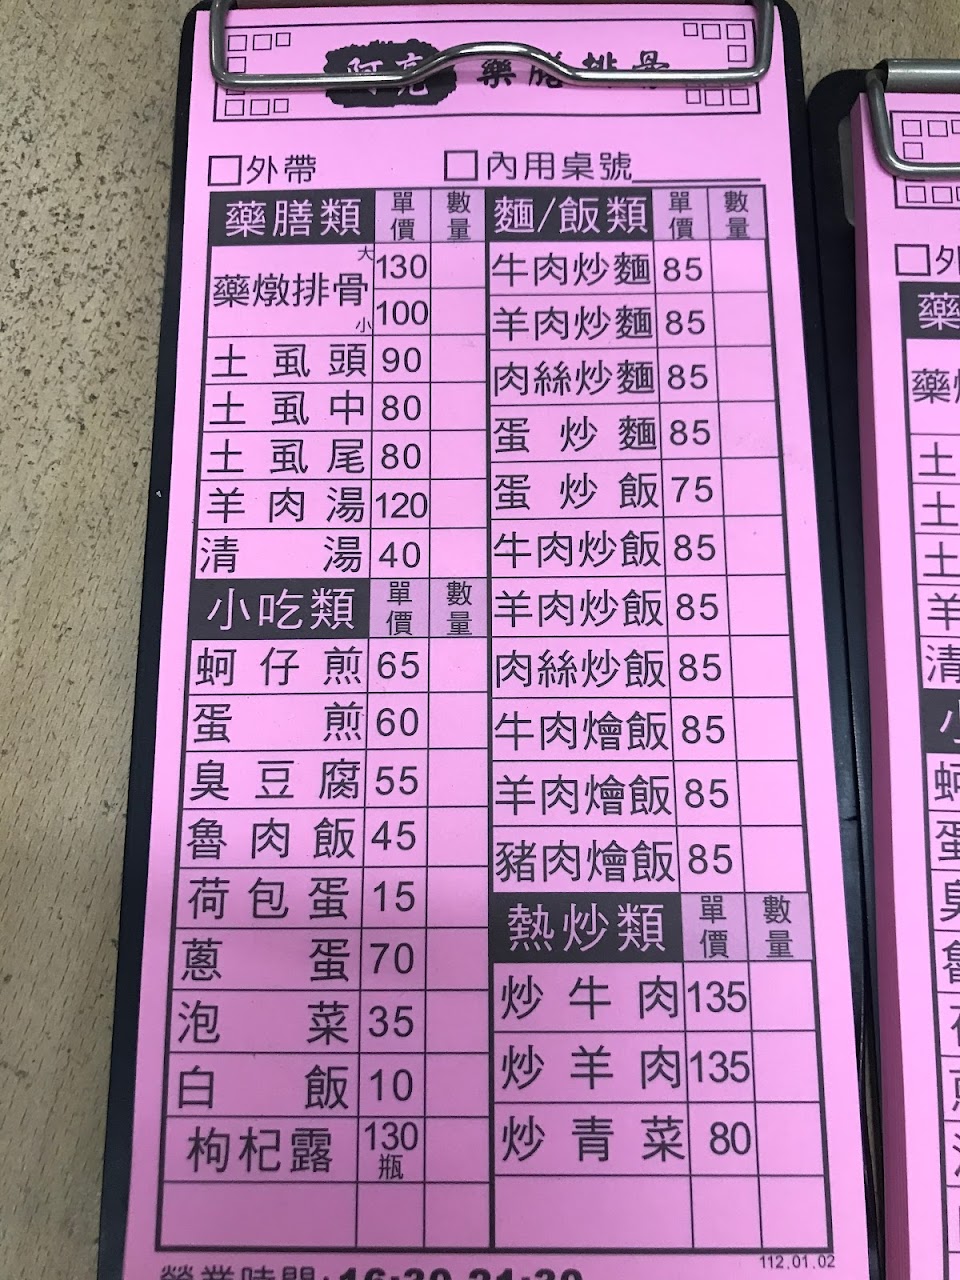 阿亮 藥膳排骨
□外帶 □內用桌號
藥膳類 單價 數量
藥燉排骨 大 130
小 100
土虱頭 90
土虱中 80
土虱尾 80
羊肉湯 120
清湯 40
小吃類 單價 數量
蚵仔煎 65
蛋煎 60
臭豆腐 55
魯肉飯 45
荷包蛋 15
蔥蛋 70
泡菜 35
白飯 10
枸杞露 130瓶
麵/飯類 單價 數量
牛肉炒麵 85
羊肉炒麵 85
肉絲炒麵 85
蛋炒麵 85
蛋炒飯 75
牛肉炒飯 85
羊肉炒飯 85
肉絲炒飯 85
牛肉燴飯 85
羊肉燴飯 85
豬肉燴飯 85
熱炒類 單價 數量
炒牛肉 135
炒羊肉 135
炒青菜 80
112.01.02
營業時間:16:30-21:30